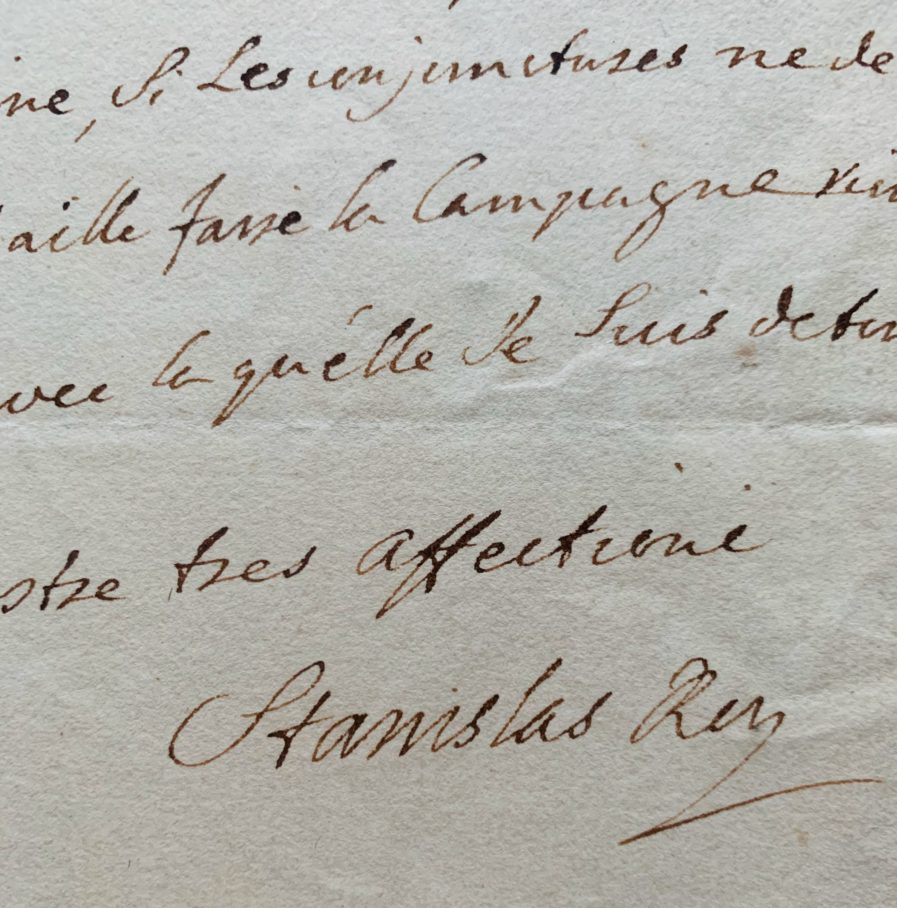 ine, Si Les conjonctures ne de
aille fasse la Campagne
avec la quélle Je Suis
ostre tres affectioné
Stanislas Roy